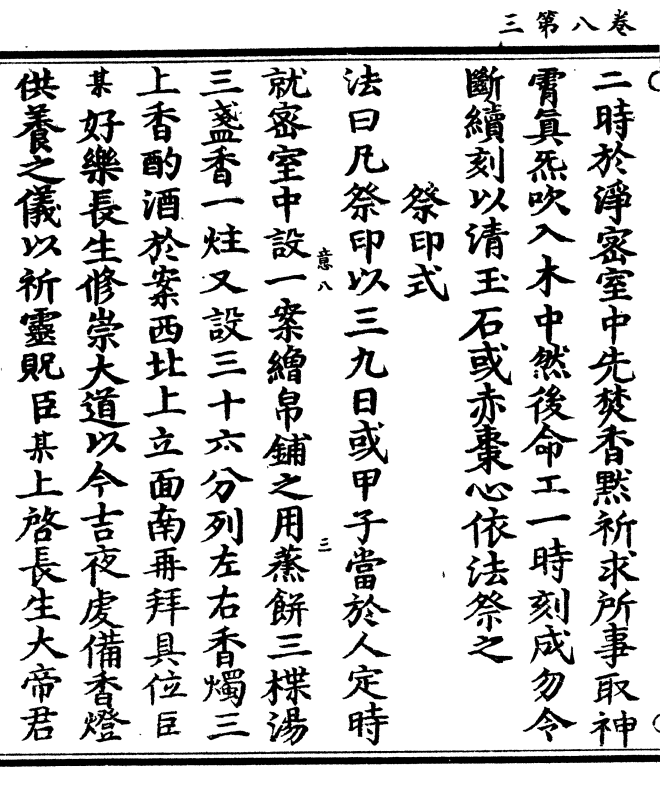 卷八第三
二時於淨密室中先焚香默祈求所事取神
霄真炁吹入木中然後命工一時刻成勿令
斷續刻以清玉石或赤棗心依法祭之
祭印式
法曰凡祭印以三九日或甲子當於人定時
就密室中設一案繒帛鋪之用蒸餅三楪湯
意八
三
三盞香一炷又設三十六分列左右香燭三
上香酌酒於案西北上立面南再拜具位臣
某好樂長生修崇大道以今吉夜虔備香燈
供養之儀以祈靈貺臣某上啓長生大帝君